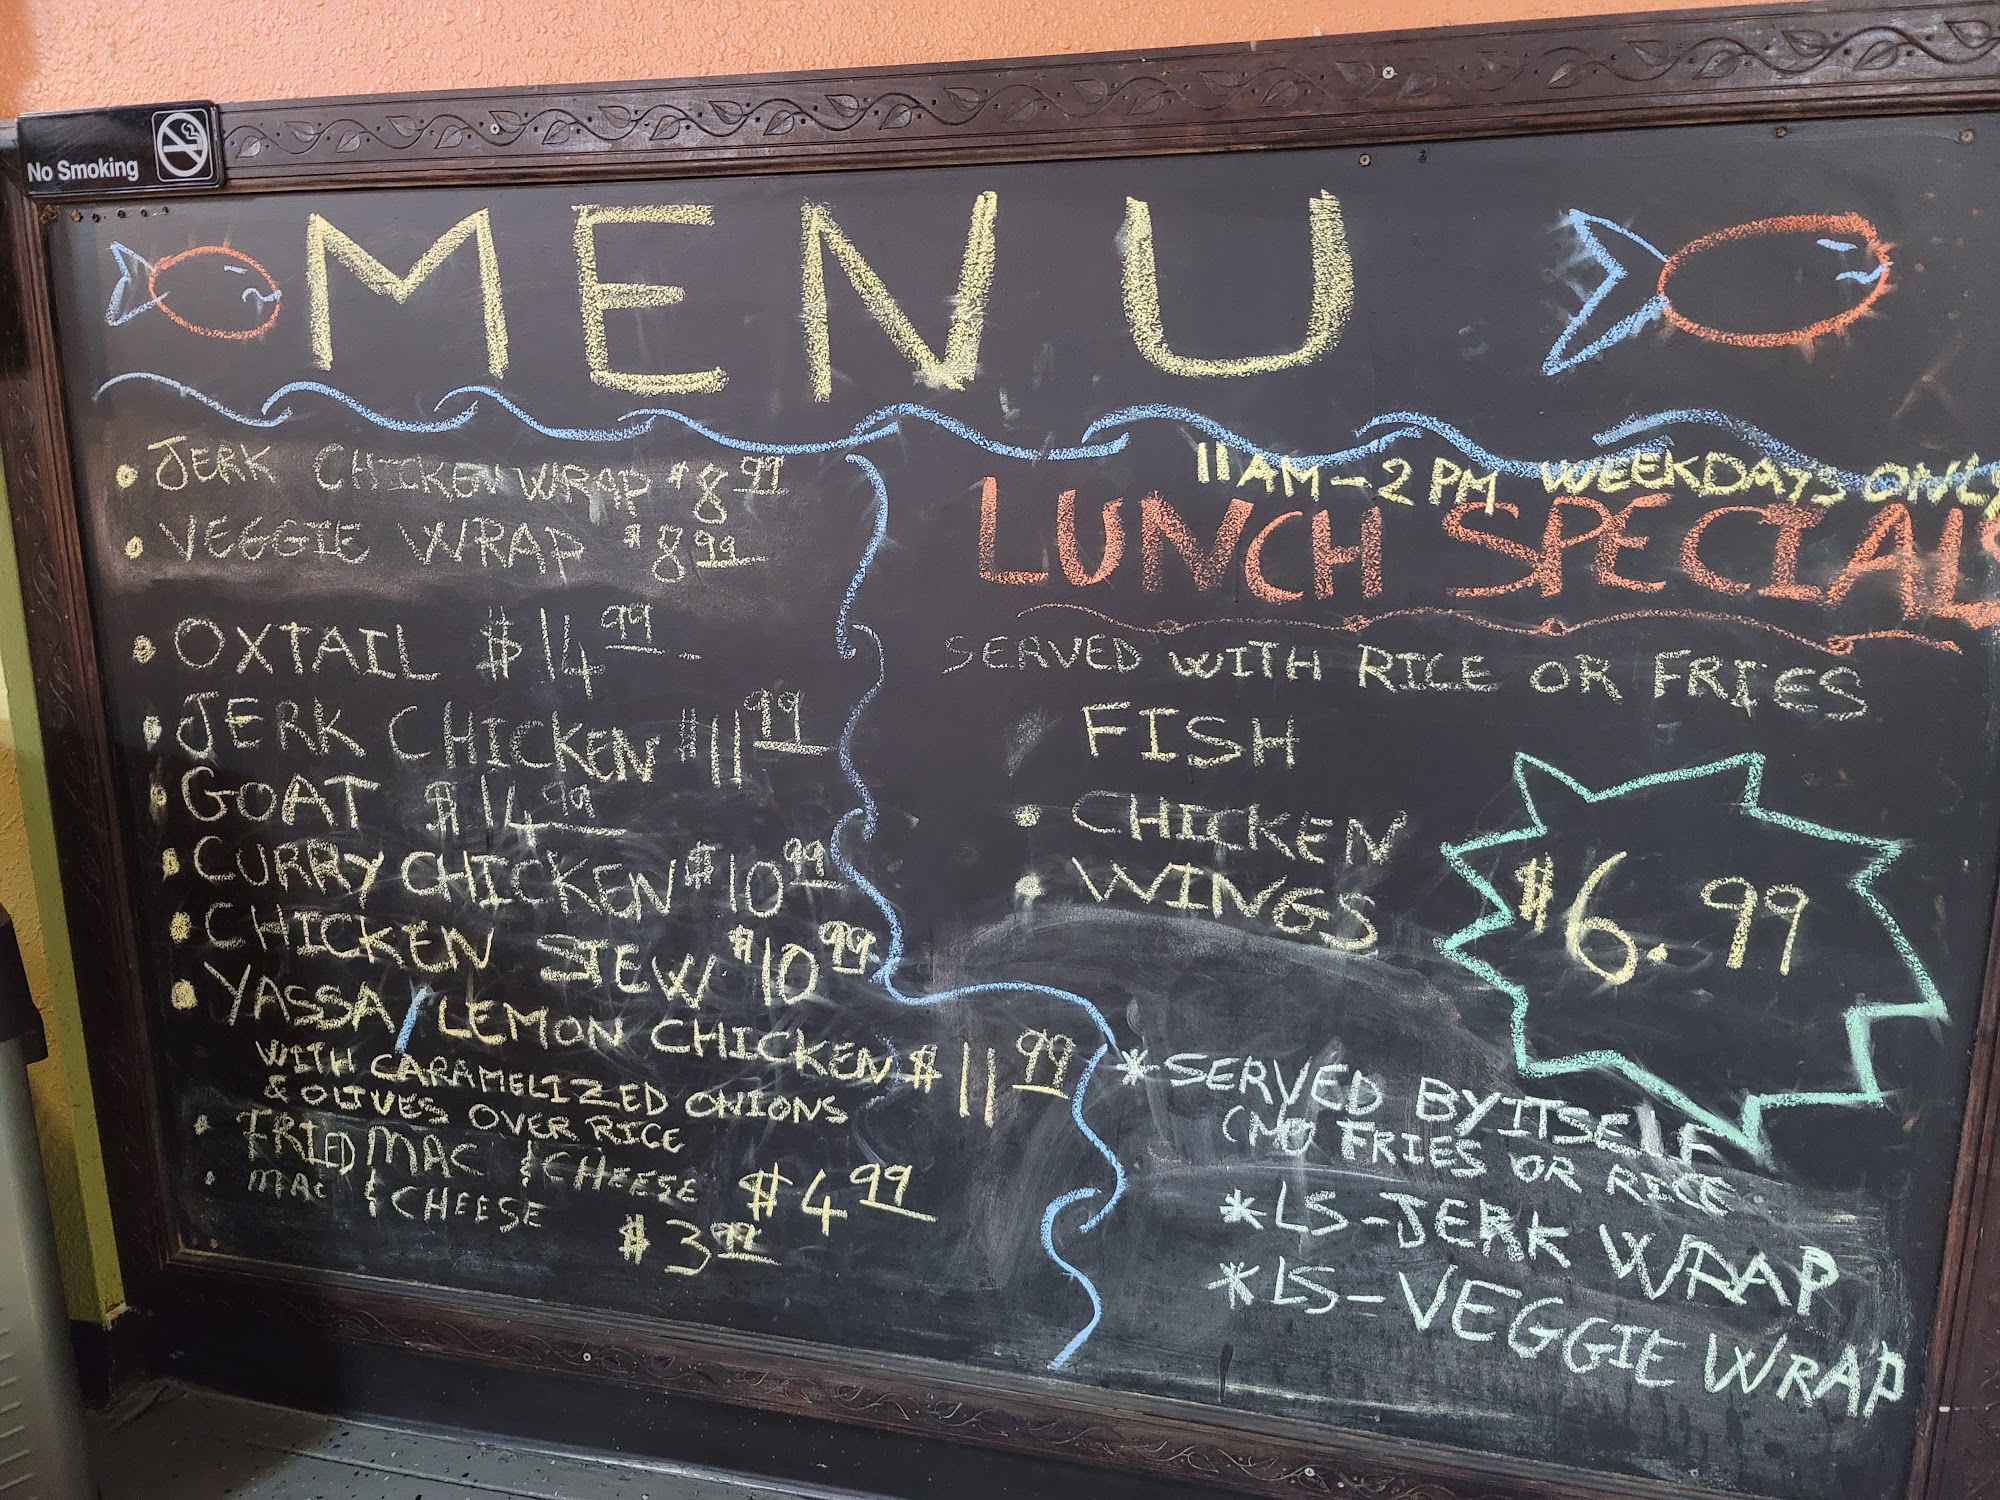 No Smoking
MENU
JERK CHICKEN WRAP $8 99
VEGGIE WRAP $8 99
OXTAIL $14 99
JERK CHICKEN $11 99
GOAT $14 99
CURRY CHICKEN $10 99
CHICKEN STEW $10 99
YASSA/LEMON CHICKEN $11 99
WITH CARAMELIZED ONIONS
& OLIVES OVER RICE
FRIED MAC & CHEESE $4 99
MAC & CHEESE $3 99
11AM-2PM WEEKDAYS ONLY
LUNCH SPECIALS
SERVED WITH RICE OR FRIES
FISH
CHICKEN
WINGS
$6.99
*SERVED BY ITSELF
(NO FRIES OR RICE
*LS-JERK WRAP
*LS-VEGGIE WRAP